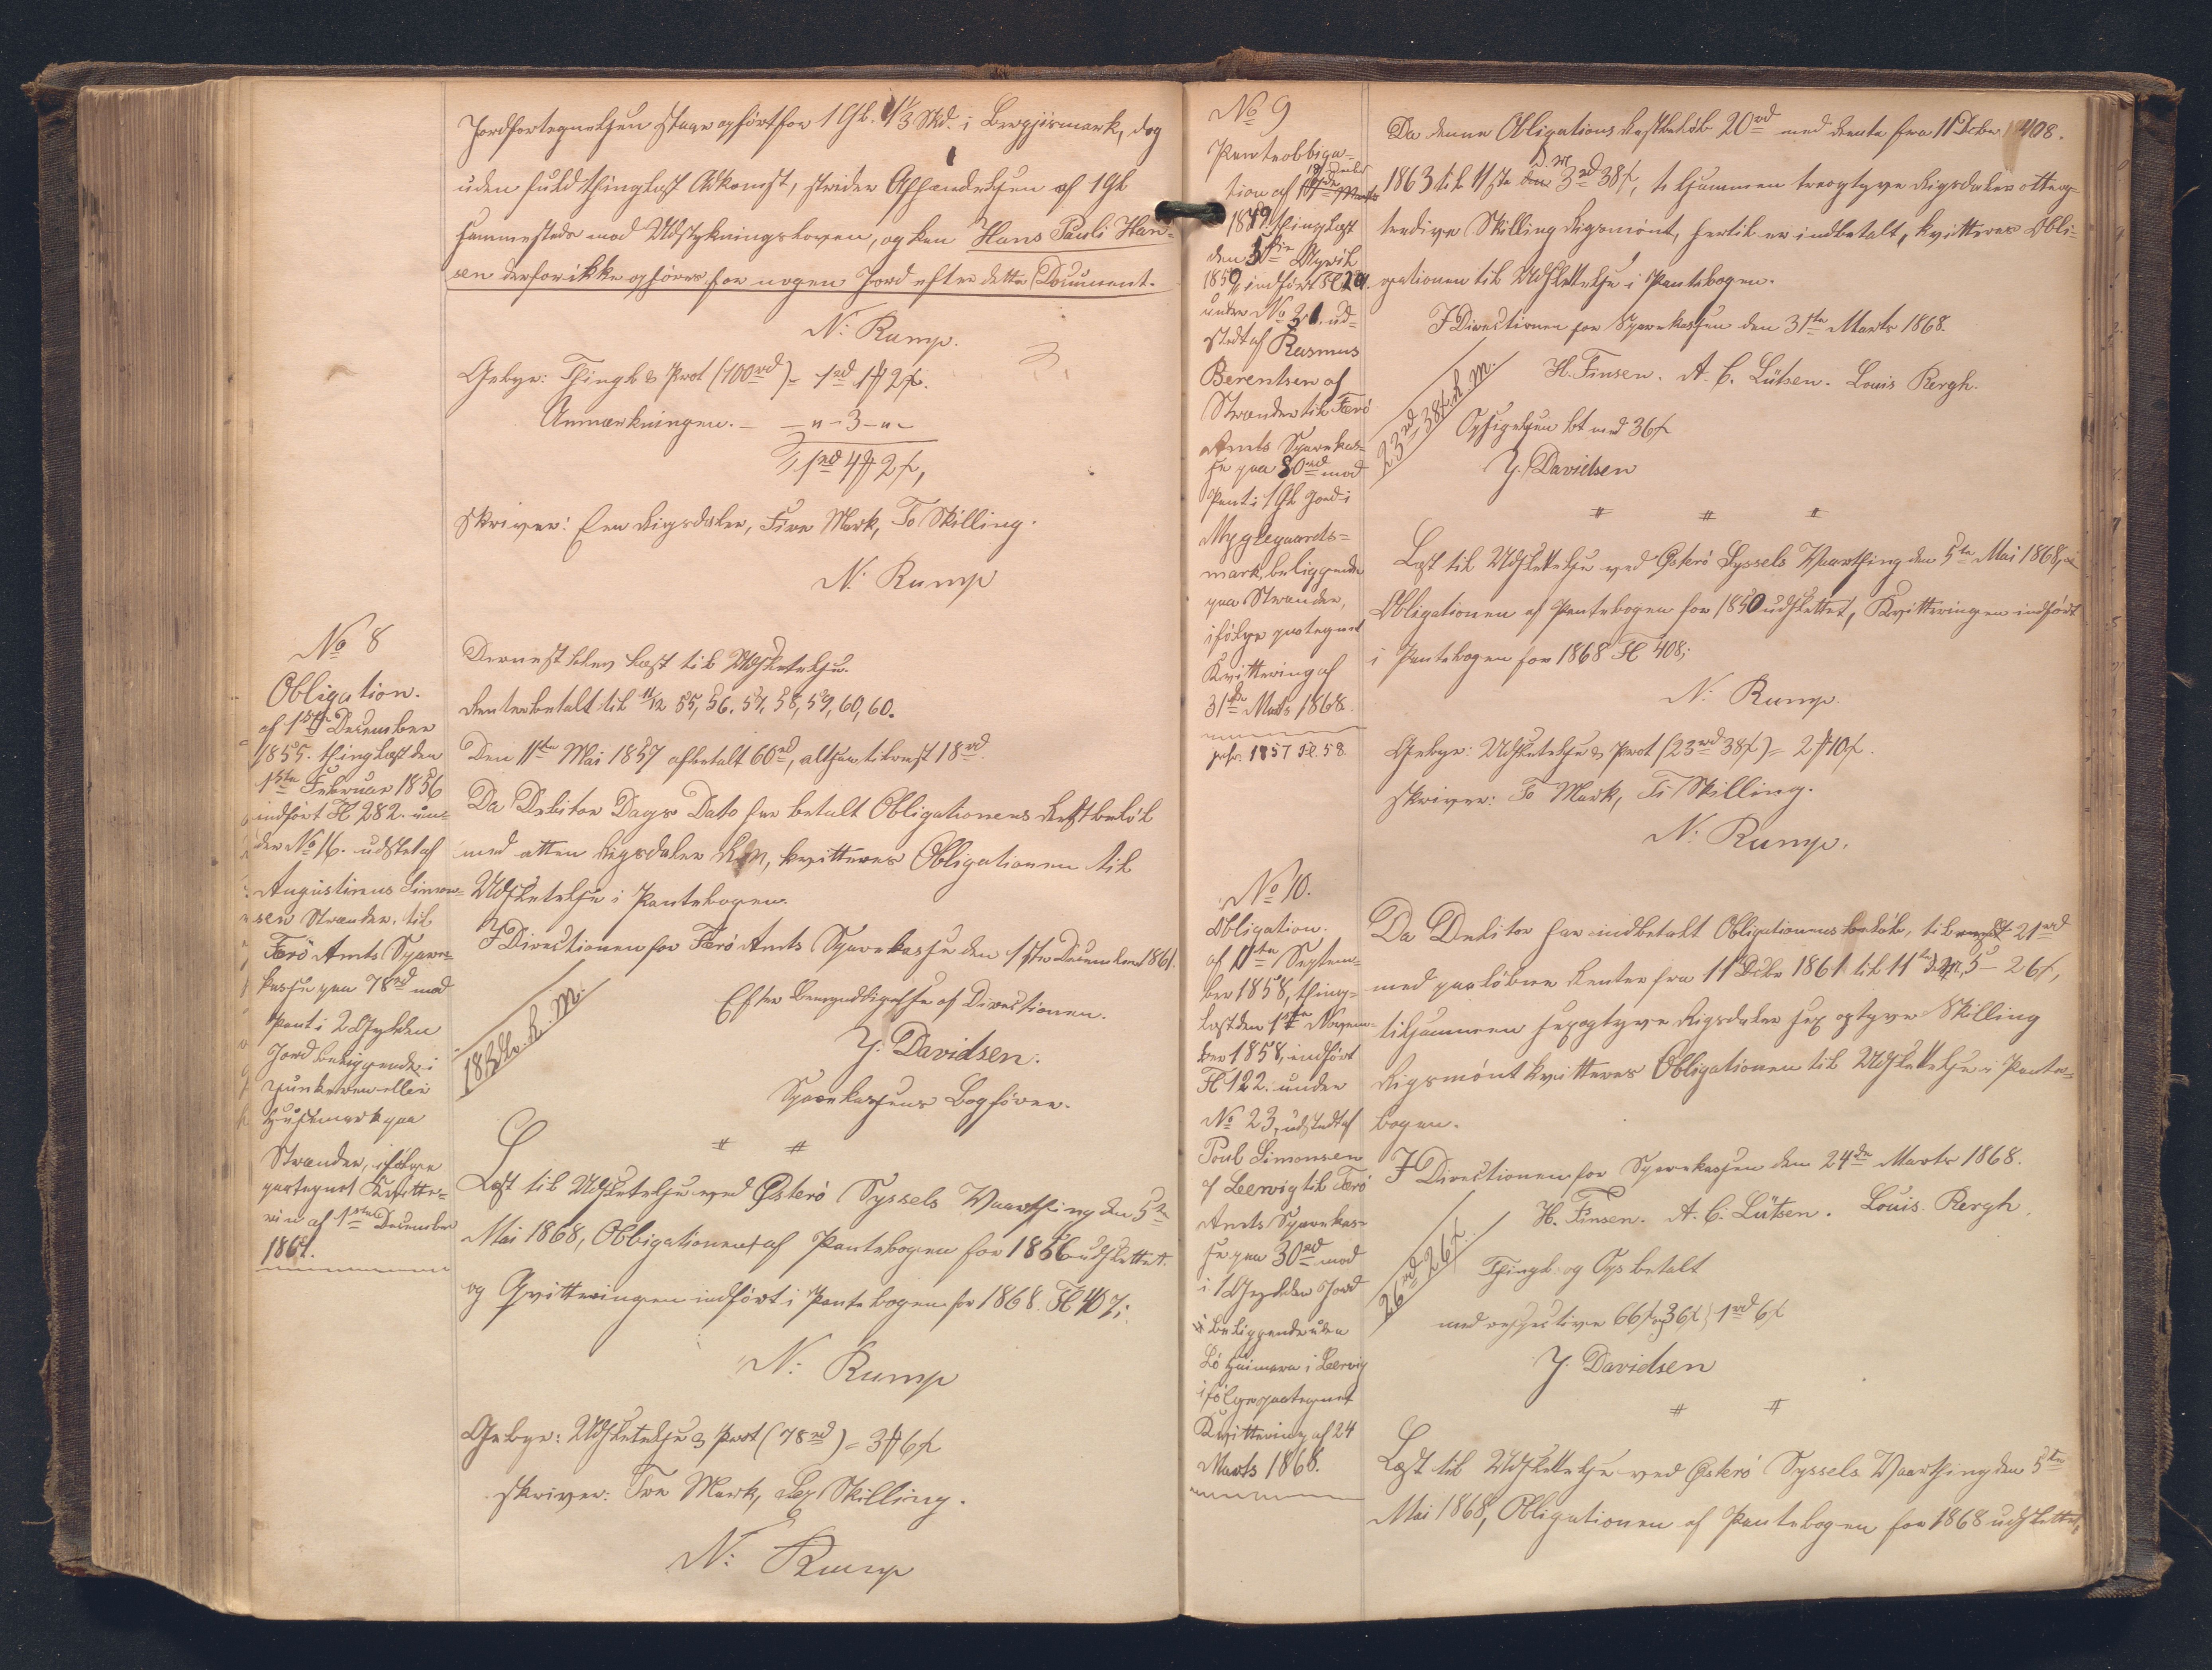 Jordfortegnelsen staar opført for 1 Gl. 1 1/3 Skd. i Bergjismark, dog
uden fuld thinglæst Adkomst, strider Afhændelsen af 1 Gl
sammesteds mod Udstykningsloven, og kan Hans Pauli Han-
sen derfor ikke opføres for nogen Jord efter dette Document.
N: Rump.
Gebyr: Thingl & Prot (100rd) = 1rd 1 # 2 s.
Anmærkningen. — — " - 3 - " -
1rd 4 # 2 s,
skriver: Een Rigsdaler, Fire Mark, To Skilling.
N. Rump
No 8
Obligation.
af 11te December
1855. thinglæst den
1ste Februar 1856
indført Fl 282. un-
der No 16. udstet af
Augustinus Simon-
sen Strænder. til
Færø Amts Spare-
kasse paa 78rd mod
Pant i 2 Gylden
Jord beliggende i
eller
Hustmark paa
Strænder, ifølge
paategnet Kvitte-
rin af 1ste December
1861.
Dernest blev læst til Udslettelse.
Renter betalt til 11/12 55, 56. 57. 58, 59, 60, 60.
Den 11te Mai 1857 afbetalt 60rd, altsaa tilrest 18rd.
Da Debitor Dags Dato har betalt Obligationens Restbeløb
med atten Rigsdaler R.M, kvitteres Obligationen til
Udslettelse i Pantebogen.
I Directionen for Færø Amts Sparekasse den 1ste December 1861.
18 rd. R. M.
Efter Bemyndigelse af Directionen.
J. Davidsen.
Sparekassens Bogfører.
# #
Læst til Udslettelse ved Østerø Syssels Vaarthing den 5te
Mai 1868, Obligationen af Pantebogen for 1856 udslettet.
og Qvitteringen indført i Pantebogen for 1868. Fl 407;
N: Rump
Gebyr: Udslettelse & Prot (78rd) = 3 # 6 s
skriver: Tre Mark, Sex Skilling.
N: Rump
No 9
Panteobliga-
tion af
thinglæst
den April
1859, indført Fl
under No 31. ud-
stedt af Rasmus
Berentsen af
Strænder til Færø
Amts Sparekas-
se paa 30rd mod
Pant i 1 Gl Jord i
Myglegaards-
mark, beliggende
paa Strænder,
ifølge paategnet
Kvittering af
31te Marts 1868.
1857 Fl. 58
408.
Da denne Obligations Restbeløb 20rd med Rente fra 11 Decbr
1863 til 11te d. M. 3rd 38 s, tilsammen treogtyve Rigsdaler otteog-
tredive Skilling Rigsmønt, hertil er indbetalt, kvitteres Obli-
gationen til Udslettelse i Pantebogen.
I Directionen for Sparekassen den 31te Marts 1868.
23rd 38 s. R. M.
H. Finsen. A. C. Lützen. Louis Bergh.
Opsigelsen bt med 36 s
J. Davidsen
# # #
Læst til Udslettelse ved Østerø Syssels Vaarthing den 5te Mai 1868,
Obligationen af Pantebogen for 1850 udslettet, Kvitteringen indført
i Pantebogen for 1868 Fl 408;
N: Rump.
Gebyr: Udslettelse & Prot (23rd 38 s) = 2 # 10 s.
skriver: To Mark, Ti Skilling.
N. Rump.
No 10.
Obligation.
af 11te Septem-
ber 1858, thing-
læst den 1ste Novem-
ber 1858, indført
Fl 122. under
No 23, udstedt af
Poul Simonsen
af Leervig til Færø
Amts Sparekas-
se paa 30rd mod
i 1 Gylden Jord
beliggende uden
i Leervig
ifølge paategnet
Kvittering af 24
Marts 1868.
Da Debitor har indbetalt Obligationens beløb, til 21rd
med paaløbne Renter fra 11 Decbr 1861 til 11te 5 — 26 s,
tilsammen sexogtyve Rigsdaler sex og tyve Skilling
Rigsmønt kvitteres Obligationen til Udslettelse i Pante-
bogen.
I Directionen for Sparekassen den 24de Marts 1868.
26rd 26 s.
H. Finsen. A. C. Lützen. Louis Bergh.
Thingl. og Ops betalt
med respective 66 s og 36 s } 1rd 6 s
J. Davidsen
# #
Læst til Udslettelse ved Østerø Syssels Vaarthing den 5te
Mai 1868, Obligationen af Pantebogen for 1868 udslettet,